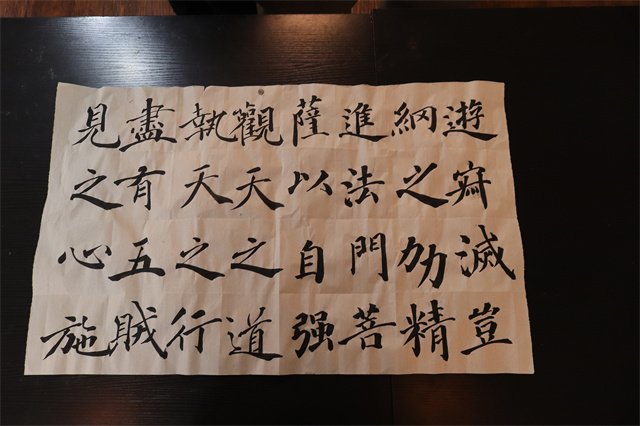 遊寂滅豈
網之功精
進法門菩
薩以自强
觀天之道
執天之行
盡有五賊
見之心施